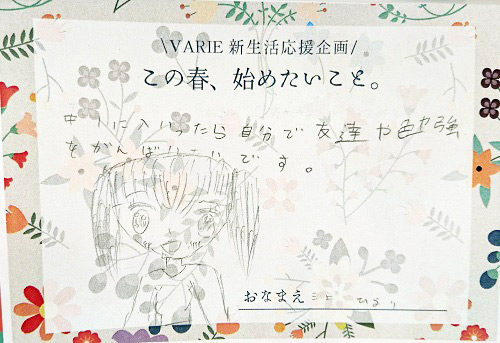 \VARIE 新生活応援企画/
この春、始めたいこと。
中1に入いったら自分で友達や勉強
をがんばりたいです。
おなまえ ひまり